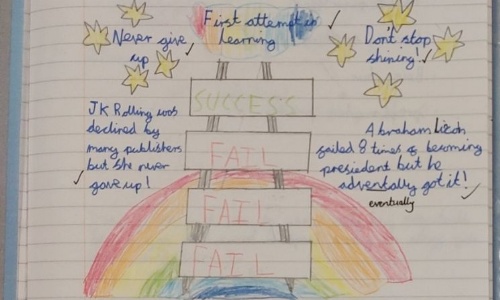 First attempt in
learning
Never give
up
Don't stop
shining!
SUCCESS
FAIL
FAIL
FAIL
JK Rolling was
declined by
many publishers
but she never
gave up!
Abraham
failed 8 times of becoming
president but he
adventally got it!
eventually